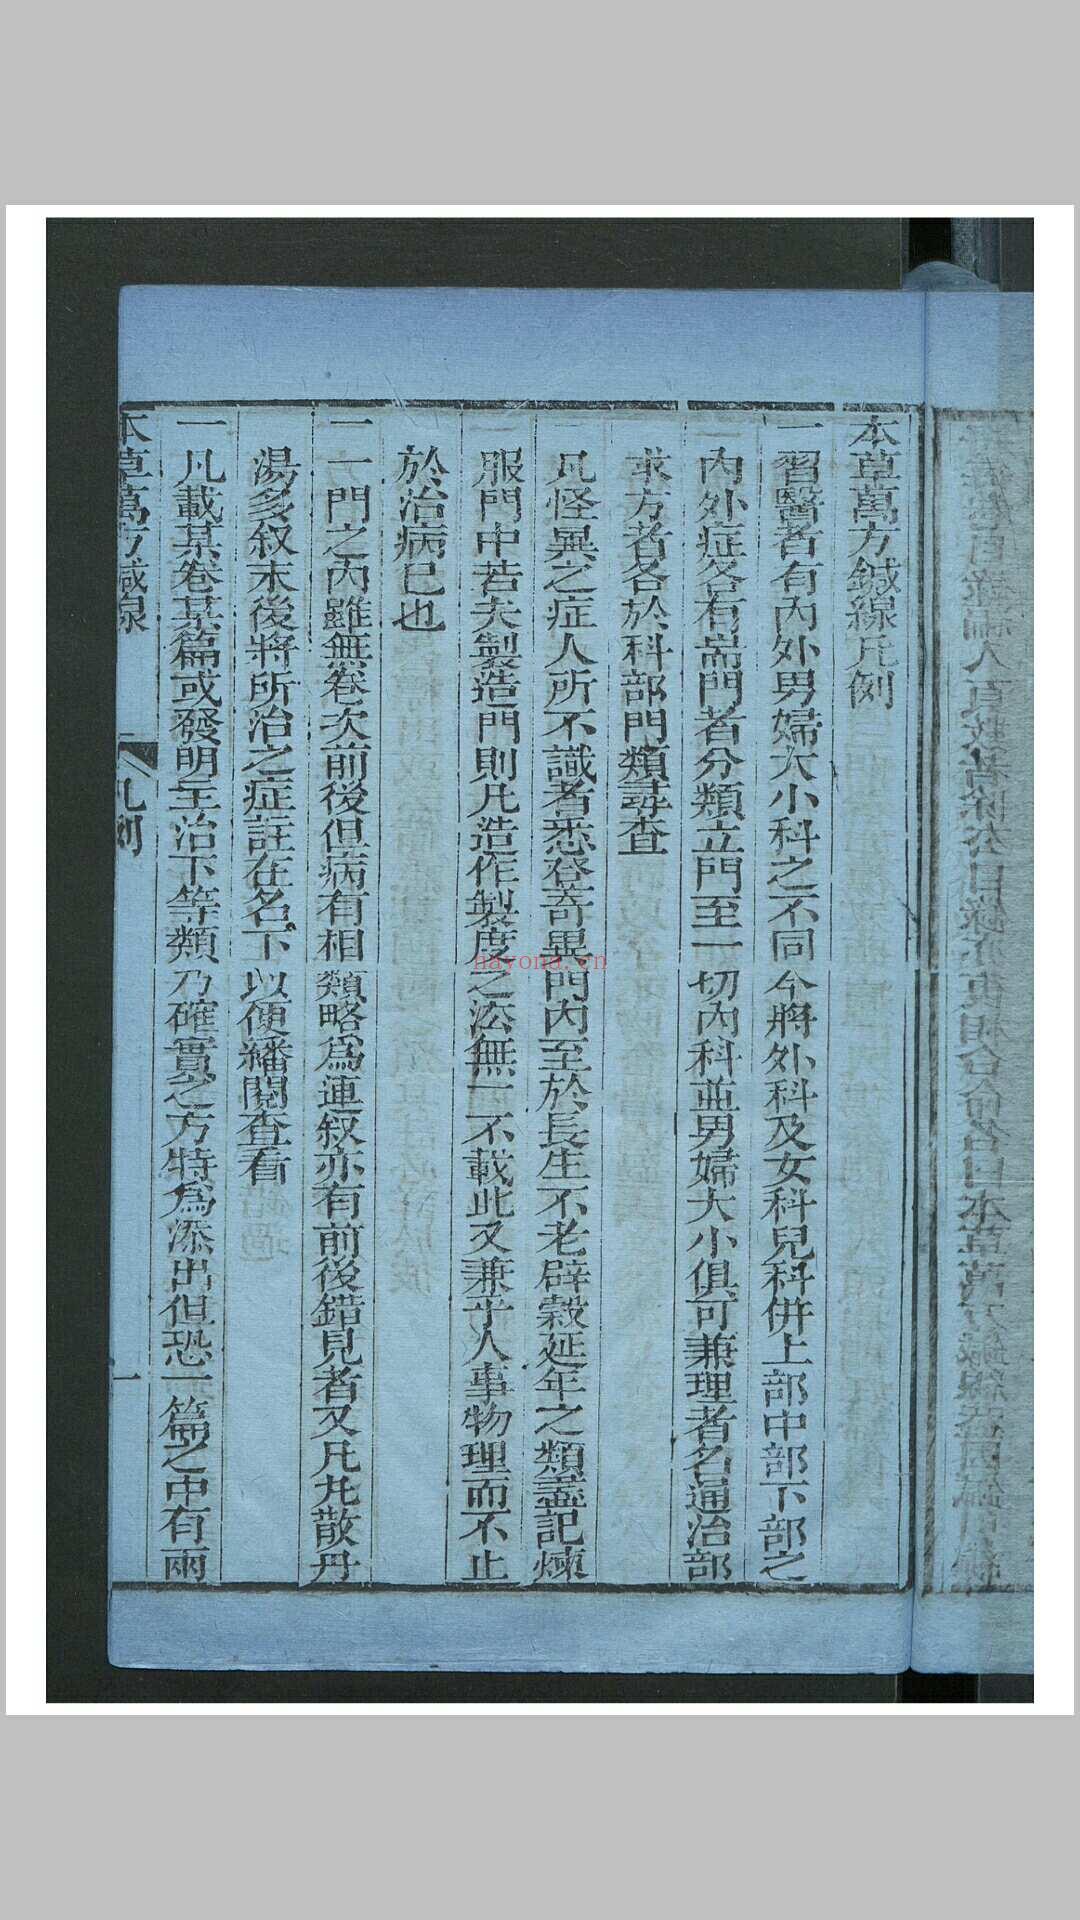 本草萬方鍼線凡例
一習醫者有內外男婦大小科之不同今將外科及女科兒科併上部中部下部之
內外症各有耑門者分類立門至一切內科並男婦大小俱可兼理者名通治部
求方者各於科部門類尋查
一凡怪異之症人所不識者悉登奇異門內至於長生不老辟穀延年之類盡記煉
服門中若夫製造門則凡造作製度之法無一不載此又兼乎人事物理而不止
於治病已也
一一門之內雖無卷次前後但病有相類略爲連叙亦有前後錯見者又凡丸散丹
湯多叙末後將所治之症註在名下以便繙閱查看
一凡載某卷某篇或發明主治下等類乃確實之方特爲添出但恐一篇之中有兩
本草萬方鍼線 凡例 一
nayona.cn